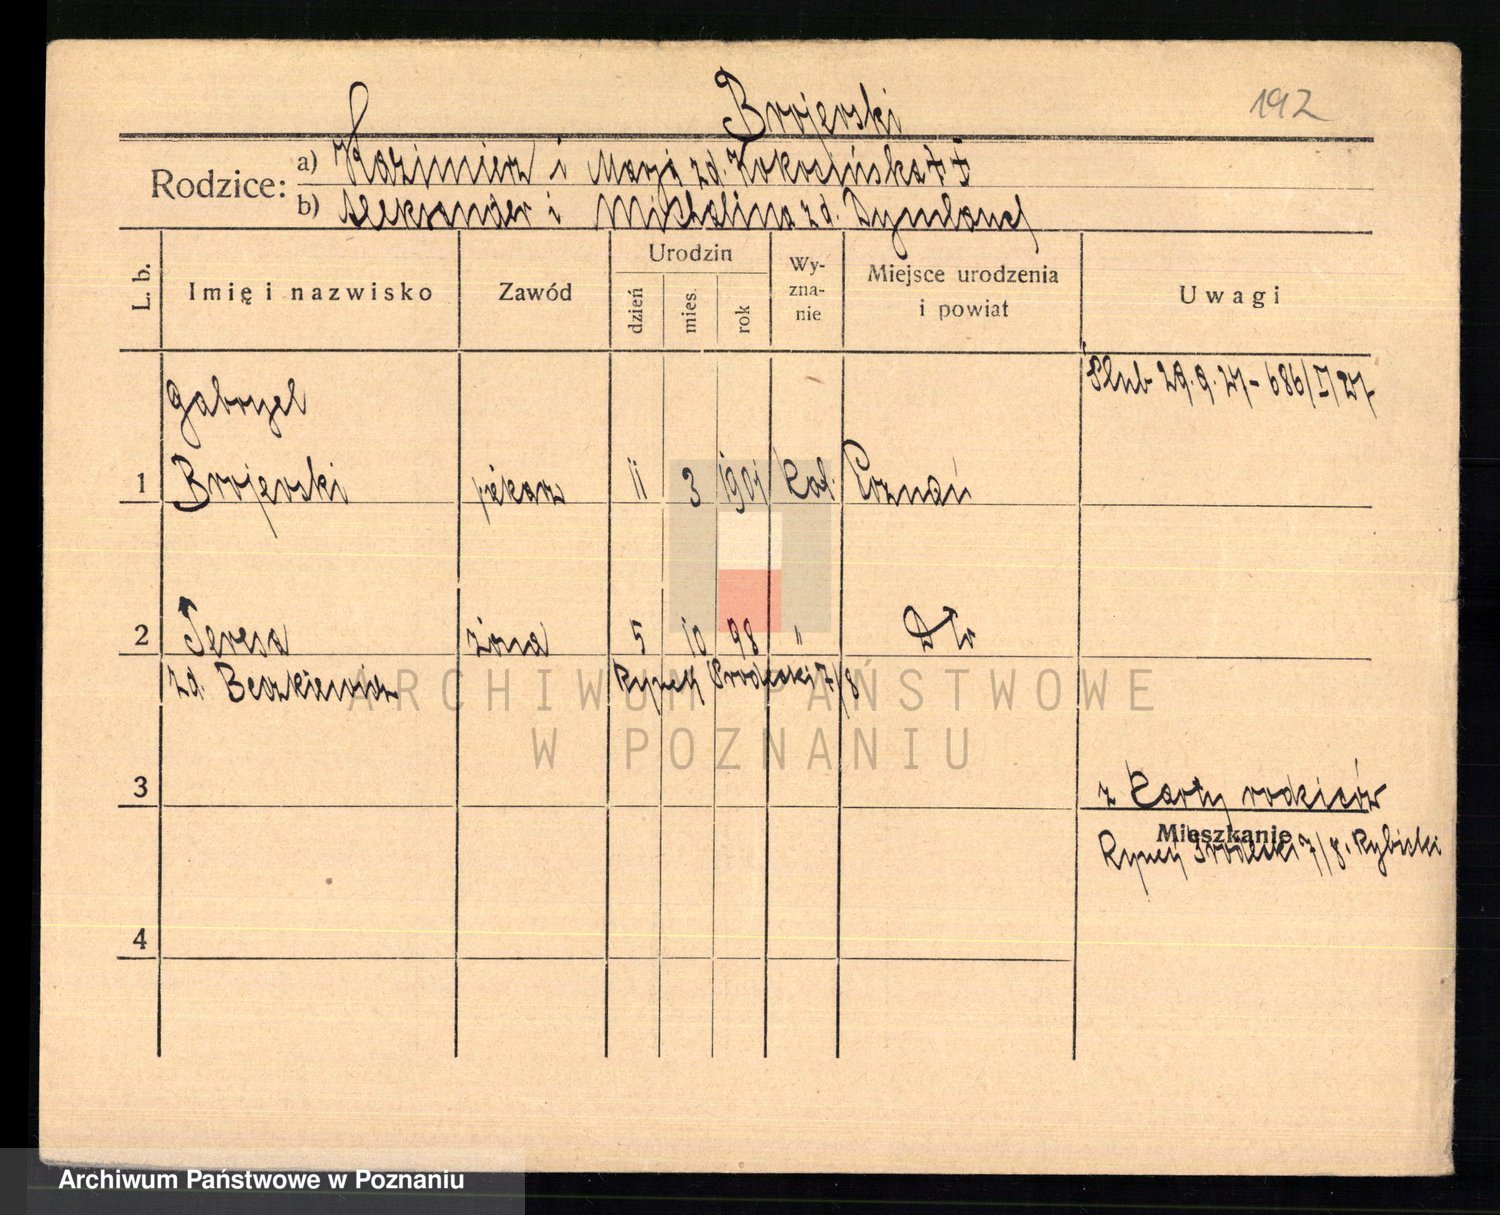 Brojerski
192
Rodzice:
a) Kazimierz i Marja zd. Kokocińska ††
b) Aleksander i Michalina zd.
L. b.
Imię i nazwisko
Zawód
Urodzin
dzień
mies.
rok
Wy-
zna-
nie
Miejsce urodzenia
i powiat
Uwagi
Ślub 29.9.27 - 686/I/27
Gabryel
1 Brojerski piekarz 11 3 1901 kat. Poznań
2 Teresa żona 5 10 98 " Dto
zd. Beszkiewicz Rynek Śródecki 7/8
3
z karty rodziców
Mieszkanie
Rynek Śródecki 7/8. Rybicki
4
ARCHIWUM PAŃSTWOWE
W POZNANIU
Archiwum Państwowe w Poznaniu